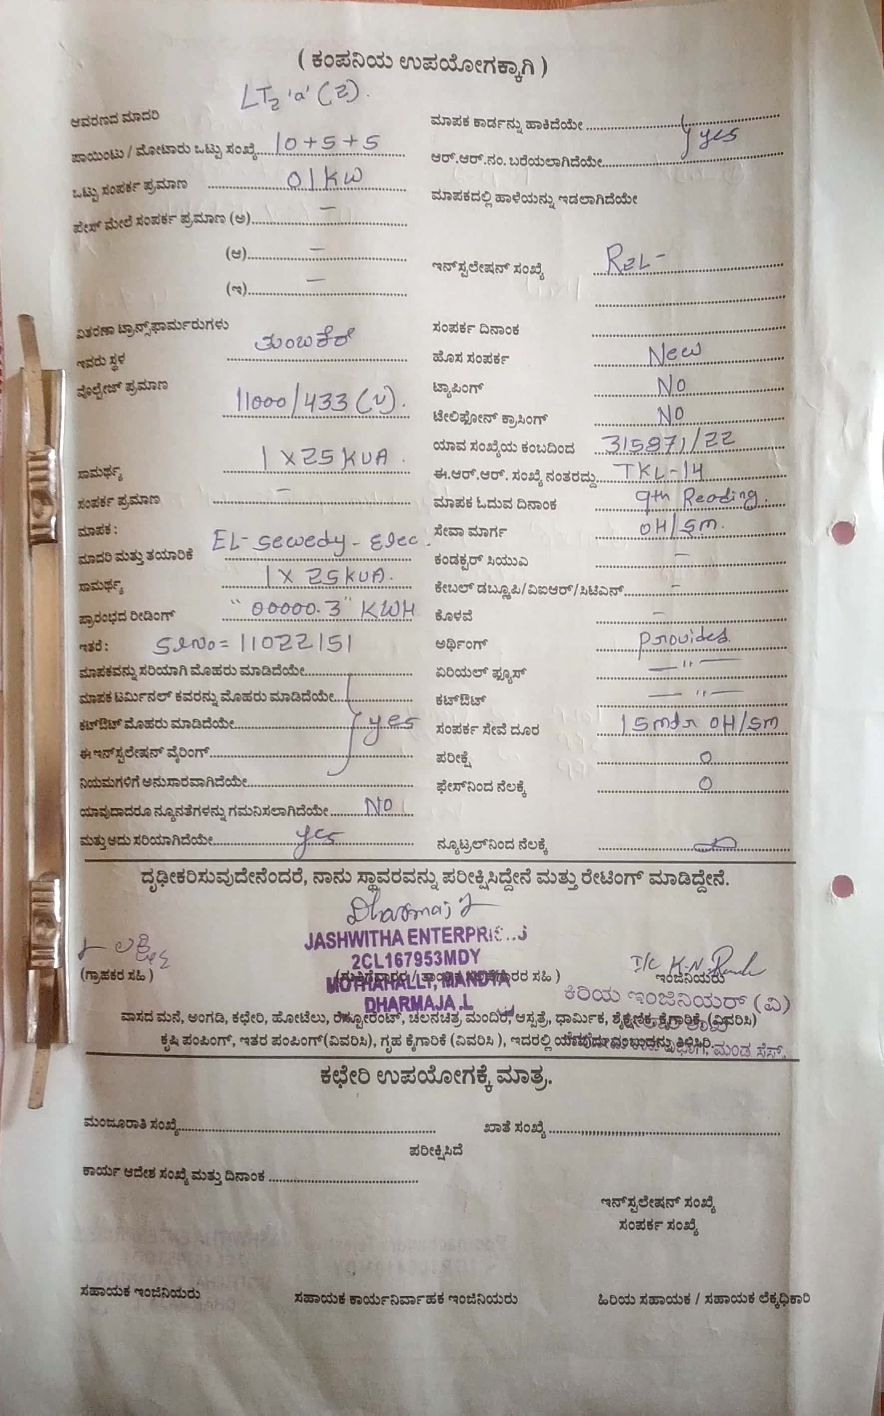 ( ಕಂಪನಿಯ ಉಪಯೋಗಕ್ಕಾಗಿ )
ಆವರಣದ ಮಾದರಿ LT2 'a' (2).
ಪಾಯಿಂಟು / ಮೋಟಾರು ಒಟ್ಟು ಸಂಖ್ಯೆ 10+5+5
ಒಟ್ಟು ಸಂಪರ್ಕ ಪ್ರಮಾಣ 01KW
ಪೇಸ್ ಮೇಲೆ ಸಂಪರ್ಕ ಪ್ರಮಾಣ (ಅ) –
(ಆ) –
(ಇ) –
ವಿತರಣಾ ಟ್ರಾನ್ಸ್‌ಫಾರ್ಮರುಗಳು
ಇವರು ಸ್ಥಳ ತುಂಬಕೆರೆ
ವೋಲ್ಟೇಜ್ ಪ್ರಮಾಣ 11000/433 (V).
ಸಾಮರ್ಥ್ಯ 1 X 25 KVA
ಸಂಪರ್ಕ ಪ್ರಮಾಣ –
ಮಾಪಕ :
ಮಾದರಿ ಮತ್ತು ತಯಾರಿಕೆ EL- Sewedy - Elec.
ಸಾಮರ್ಥ್ಯ 1 X 25 KVA.
ಪ್ರಾರಂಭದ ರೀಡಿಂಗ್ "00000.3" KWH
ಇತರೆ : Sl No = 11022151
ಮಾಪಕವನ್ನು ಸರಿಯಾಗಿ ಮೊಹರು ಮಾಡಿದೆಯೇ
ಮಾಪಕ ಟರ್ಮಿನಲ್ ಕವರನ್ನು ಮೊಹರು ಮಾಡಿದೆಯೇ
ಕಟ್‌ಔಟ್ ಮೊಹರು ಮಾಡಿದೆಯೇ yes
ಈ ಇನ್‌ಸ್ಟಲೇಷನ್ ವೈರಿಂಗ್
ನಿಯಮಗಳಿಗೆ ಅನುಸಾರವಾಗಿದೆಯೇ
ಯಾವುದಾದರೂ ನ್ಯೂನತೆಗಳನ್ನು ಗಮನಿಸಲಾಗಿದೆಯೇ NO
ಮತ್ತು ಅದು ಸರಿಯಾಗಿದೆಯೇ yes
ಮಾಪಕ ಕಾರ್ಡನ್ನು ಹಾಕಿದೆಯೇ
yes
ಆರ್.ಆರ್.ನಂ. ಬರೆಯಲಾಗಿದೆಯೇ
ಮಾಪಕದಲ್ಲಿ ಹಾಳೆಯನ್ನು ಇಡಲಾಗಿದೆಯೇ
ಇನ್‌ಸ್ಟಲೇಷನ್ ಸಂಖ್ಯೆ REL-
ಸಂಪರ್ಕ ದಿನಾಂಕ
ಹೊಸ ಸಂಪರ್ಕ New
ಟ್ಯಾಪಿಂಗ್ NO
ಟೇಲಿಫೋನ್ ಕ್ರಾಸಿಂಗ್ NO
ಯಾವ ಸಂಖ್ಯೆಯ ಕಂಬದಿಂದ 315871/22
ಈ.ಆರ್.ಆರ್. ಸಂಖ್ಯೆ ನಂತರದ್ದು TKL-14
ಮಾಪಕ ಓದುವ ದಿನಾಂಕ 9th Reading.
ಸೇವಾ ಮಾರ್ಗ OH/Sm.
ಕಂಡಕ್ಟರ್ ಸಿಯುಎ –
ಕೇಬಲ್ ಡಬ್ಲೂಪಿ/ವಿಐಆರ್/ಸಿಟಿಎಸ್ –
ಕೊಳವೆ –
ಅರ್ಥಿಂಗ್ provided
ಏರಿಯಲ್ ಫ್ಯೂಸ್ — " —
ಕಟ್‌ಔಟ್ — " —
ಸಂಪರ್ಕ ಸೇವೆ ದೂರ 15mtr OH/Sm
ಪರೀಕ್ಷೆ 0
ಫೇಸ್‌ನಿಂದ ನೆಲಕ್ಕೆ 0
ನ್ಯೂಟ್ರಲ್‌ನಿಂದ ನೆಲಕ್ಕೆ
ದೃಢೀಕರಿಸುವುದೇನೆಂದರೆ, ನಾನು ಸ್ಥಾವರವನ್ನು ಪರೀಕ್ಷಿಸಿದ್ದೇನೆ ಮತ್ತು ರೇಟಿಂಗ್ ಮಾಡಿದ್ದೇನೆ.
Dharmaj L
JASHWITHA ENTERPRISES
2CL167953MDY
MOTHAHALLY, MANDYA
DHARMAJA.L
I/c
(ಗ್ರಾಹಕರ ಸಹಿ)
ಇಂಜಿನಿಯರು
ಕಿರಿಯ ಇಂಜಿನಿಯರ್ (ವಿ)
ವಾಸದ ಮನೆ, ಅಂಗಡಿ, ಕಛೇರಿ, ಹೋಟೆಲು, ರೆಸ್ಟೋರೆಂಟ್, ಚಲನಚಿತ್ರ ಮಂದಿರ, ಆಸ್ಪತ್ರೆ, ಧಾರ್ಮಿಕ, ಶೈಕ್ಷಣಿಕ, ಕೈಗಾರಿಕೆ, (ವಿವರಿಸಿ)
ಕೃಷಿ ಪಂಪಿಂಗ್, ಇತರ ಪಂಪಿಂಗ್(ವಿವರಿಸಿ), ಗೃಹ ಕೈಗಾರಿಕೆ (ವಿವರಿಸಿ ), ಇದರಲ್ಲಿ ಯಾವುದೆಂಬುದನ್ನು ತಿಳಿಸಿರಿ.
ಕಛೇರಿ ಉಪಯೋಗಕ್ಕೆ ಮಾತ್ರ.
ಮಂಜೂರಾತಿ ಸಂಖ್ಯೆ ಖಾತೆ ಸಂಖ್ಯೆ
ಪರೀಕ್ಷಿಸಿದೆ
ಕಾರ್ಯ ಆದೇಶ ಸಂಖ್ಯೆ ಮತ್ತು ದಿನಾಂಕ
ಇನ್‌ಸ್ಟಲೇಷನ್ ಸಂಖ್ಯೆ
ಸಂಪರ್ಕ ಸಂಖ್ಯೆ
ಸಹಾಯಕ ಇಂಜಿನಿಯರು ಸಹಾಯಕ ಕಾರ್ಯನಿರ್ವಾಹಕ ಇಂಜಿನಿಯರು ಹಿರಿಯ ಸಹಾಯಕ / ಸಹಾಯಕ ಲೆಕ್ಕಧಿಕಾರಿ